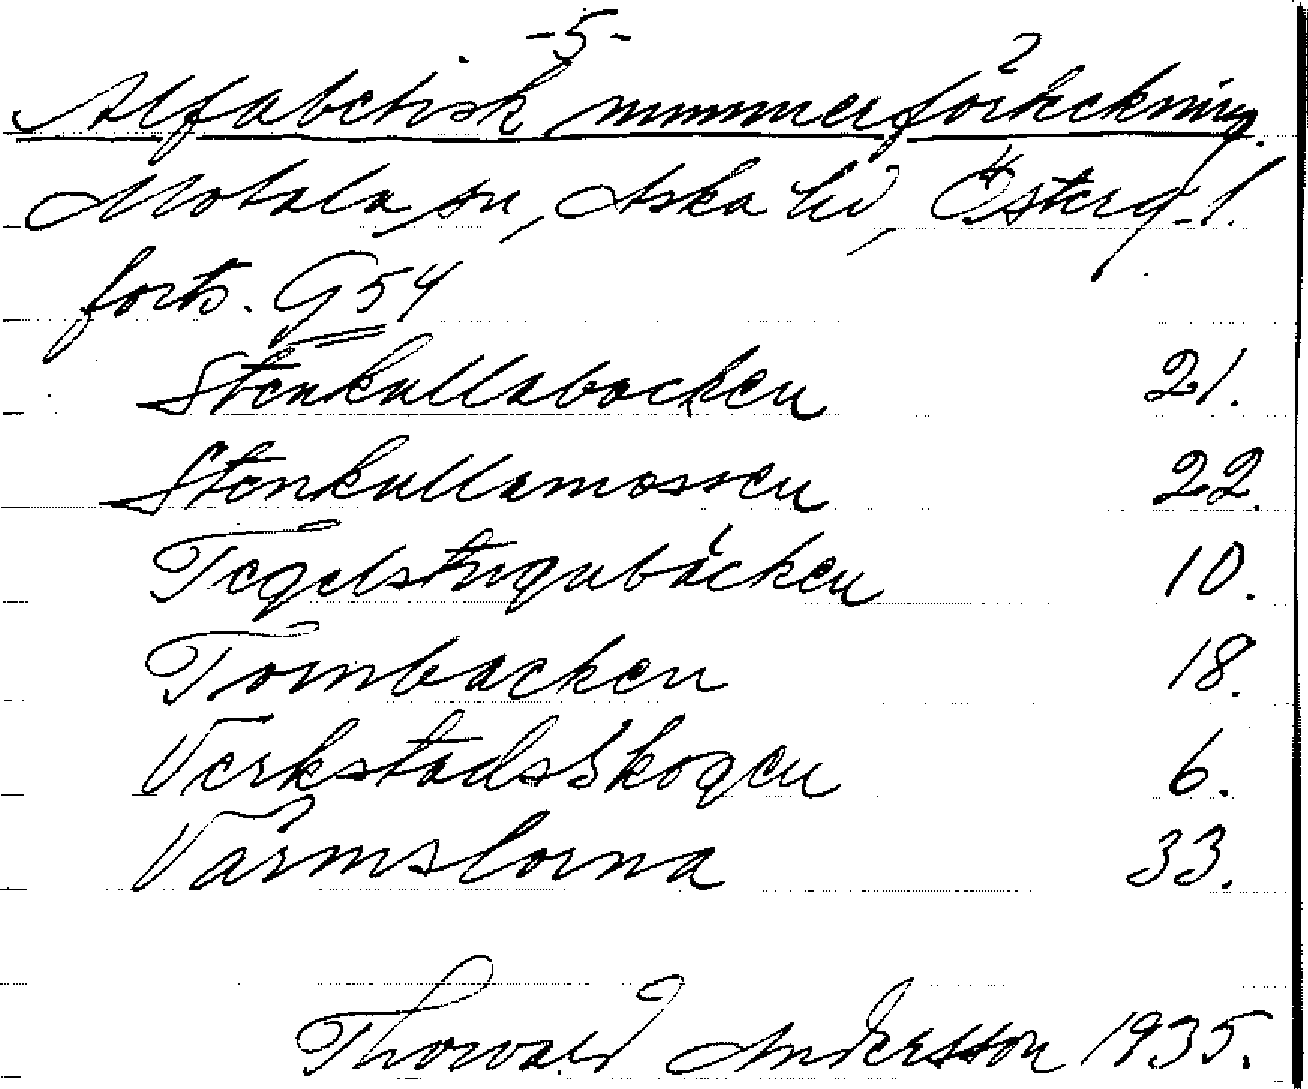 -5-
Alfabetisk nummerförteckning.
Motala sn, Aska hd, Österg. l.
forts. G54
Stenkullabacken 21.
Stenkullamossen 22.
Tegelstugubäcken 10.
Tombacken 18.
Verkstadsskogen 6.
33.
Thorvald Andersson 1935.